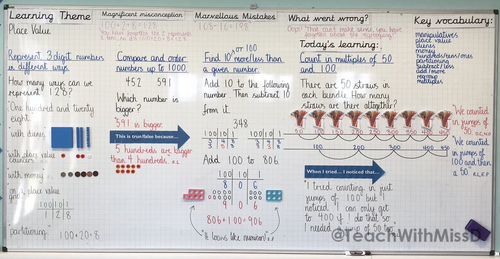 Learning Theme
Place Value
Represent 3-digit numbers
in different ways.
How many ways can we
represent 128?
"One hundred and twenty
eight."
"with dienes
"with place value
counters
"with money
on a place value
grid
100 10 1
1 2 8
"partitioning" 100+20+8
Magnificent misconception
100+20+8=128
Compare and order
numbers up to 1000.
452 591
Which number is
bigger?
591 is bigger.
This is true/false because...
5 hundreds are bigger
than 4 hundreds.
Marvellous Mistakes
Find 10 or 100 more/less than
a given number.
Add 10 to the following
number. Then subtract 10
from it.
348
100 10 1
100 10 1
Add 100 to 806
100 10 1
8 0 6
9 0 6
806+100=906
"It looks like Numicon!"
What went wrong?
Today's learning:
Count in multiples of 50
and 100.
There are 50 straws in
each bundle. How many
straws are there altogether?
50 100 150 200 250 300 350 400 450
100 200 300 400
When I tried... I noticed that...
"I tried counting in just
jumps of 100 but I
noticed I can only get
to 400 if I do that so
I needed a jump of 50 too."
Key vocabulary:
manipulatives
place value
dienes
money
hundreds/tens/ones
partitioning
subtract/less
add/more
regroup
multiples
"We counted
in jumps of
50.
"We counted
in jumps of
100 and then
a 50"
@TeachWithMissD